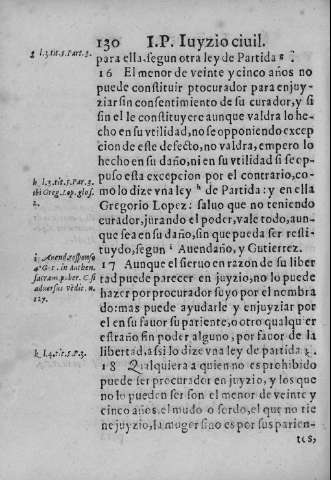 130 I.P. Iuyzio ciuil.
g l.3.tit.5.Part.3.
para ella, segun otra ley de Partida g ?
16 El menor de veinte y cinco años no
puede constituir procurador para enjuy-
ziar sin consentimiento de su curador, y si
sin el le constituyere aunque valdra lo he-
cho en su vtilidad, no se opponiendo excep
cion de este defecto, no valdra, empero lo
hecho en su daño, ni en su vtilidad si se op-
puso esta excepcion por el contrario, co-
h l.3.tit.5.Par.3.
ibi Greg. Lop. glos.
2.
mo lo dize vna ley h de Partida: y en ella
Gregorio Lopez: saluo que no teniendo
curador, jurando el poder, vale todo, aun-
que sea en su daño, sin que pueda ser resti-
tuydo, segun i Auendaño, y Gutierrez.
i Auend. responso
4. Gut. in Authen.
sacram. puber. C. si
aduersus vēdit. n.
127.
17 Aunque el sieruo en razon de su liber
tad puede parecer en juyzio, no lo puede
hazer por procurador suyo por el nombra
do: mas puede ayudarle y enjuyziar por
el en su fauor su pariente, o otro qualquier
estraño sin poder alguno, por fauor de la
k l.4.tit.5.P.3.
libertad, assi lo dize vna ley de partida k.
18 Qualquiera a quien no es prohibido
puede ser procurador en juyzio, y los que
no lo pueden ser son el menor de veinte y
cinco años, el mudo o sordo, el que no tie
ne juyzio, la muger sino es por sus parien-
tes,